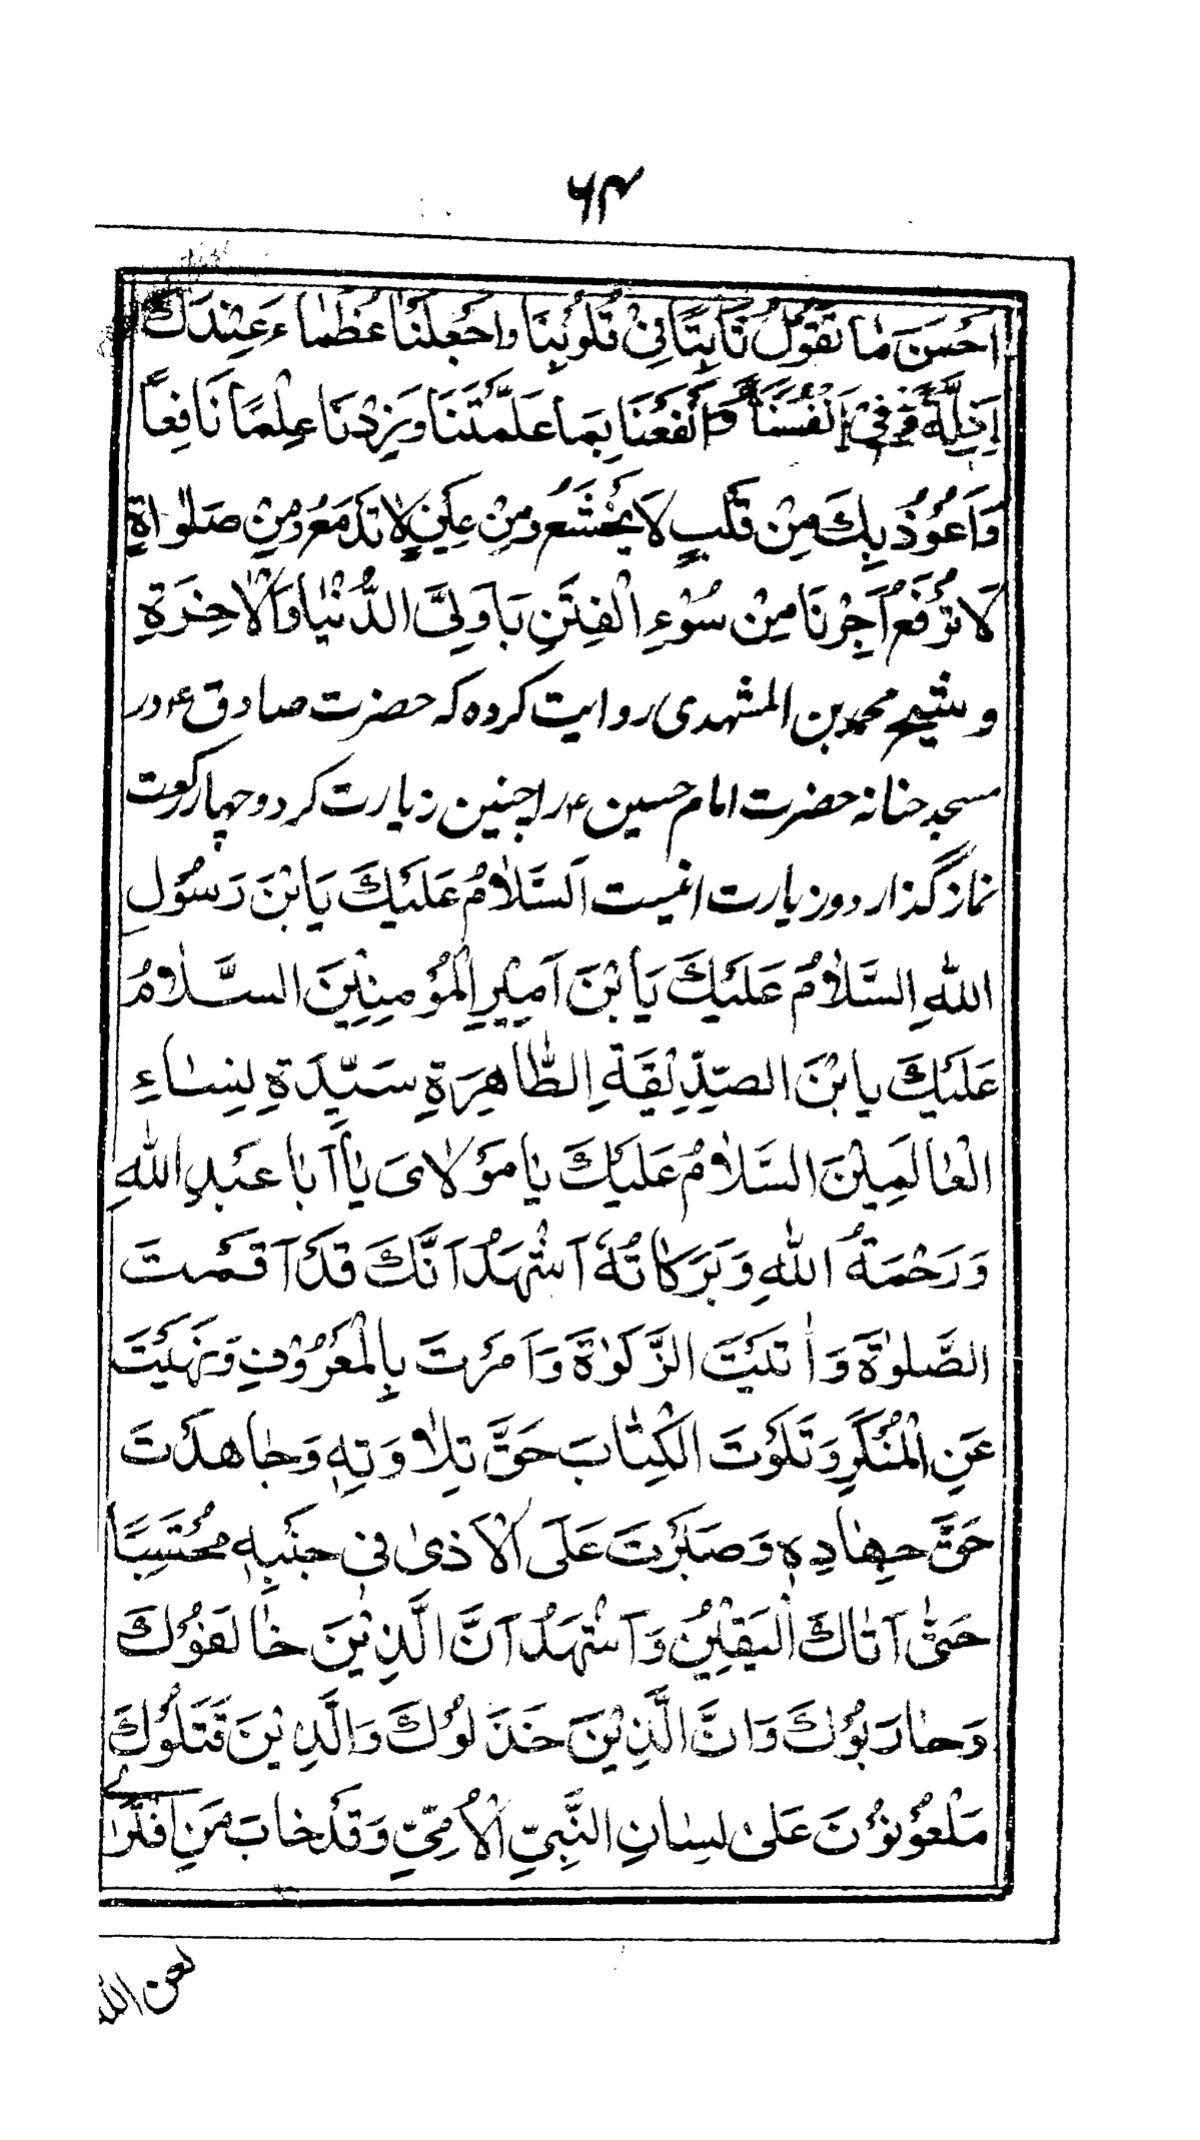 ۶۴
اَحْسَنَ مٰا تَقُوْلُ ثَابِتًا فِیْ قُلُوْبِنَا وَاجْعَلْنَا عُظَمٰاءَ عِنْدَكَ
اَذِلَّةً فِیْ اَنْفُسِنَا وَانْفَعْنَا بِمَا عَلَّمْتَنَا وَزِدْنَا عِلْمًا نَافِعًا
وَاَعُوْذُ بِكَ مِنْ قَلْبٍ لَا یَخْشَعُ وَمِنْ عَیْنٍ لَا تَدْمَعُ وَمِنْ صَلٰواةٍ
لَا تُرْفَعُ اَجِرْنَا مِنْ سُوْءِ الْفِتَنِ یَا وَلِیَّ الدُّنْیٰا وَالْاٰخِرَةِ
و شیخ محمد بن المشهدی روایت کرده که حضرت صادق ع در
مسجد حنانه حضرت امام حسین ع را چنین زیارت کرد و چهار رکعت
نماز گذارد و زیارت اینست اَلسَّلَامُ عَلَیْكَ یَا بْنَ رَسُوْلِ
اللّٰهِ السَّلَامُ عَلَیْكَ یَا بْنَ اَمِیْرِ الْمُؤْمِنِیْنَ السَّلَامُ
عَلَیْكَ یا بْنَ الصِّدِّیْقَةِ الطَّاهِرَةِ سَیِّدَةِ نِسٰاءِ
الْعٰالَمِیْنَ السَّلَامُ عَلَیْكَ یٰا مَوْلَایَ یٰا اَبٰا عَبْدِ اللّٰهِ
وَرَحْمَةُ اللّٰهِ وَبَرَكٰاتُهٗ اَشْهَدُ اَنَّكَ قَدْ اَقَمْتَ
الصَّلٰوةَ وَاٰتَیْتَ الزَّكٰوةَ وَاَمَرْتَ بِالْمَعْرُوْفِ وَنَهَیْتَ
عَنِ الْمُنْكَرِ وَتَلَوْتَ الْكِتٰابَ حَقَّ تِلٰاوَتِهٖ وَجٰاهَدْتَ
حَقَّ جِهٰادِهٖ وَصَبَرْتَ عَلَی الْاَذٰی فِی جَنْبِهٖ مُحْتَسِبًا
حَتّٰی اَتٰاكَ الْیَقِیْنُ وَاَشْهَدُ اَنَّ الَّذِیْنَ خٰالَفُوْكَ
وَحٰارَبُوْكَ وَانَّ الَّذِیْنَ خَذَلُوْكَ وَالَّذِیْنَ قَتَلُوْكَ
مَلْعُوْنُوْنَ عَلٰی لِسٰانِ النَّبِیِّ الْاُمِّیِّ وَقَدْ خٰابَ مَنِ افْتَرٰی
لعن الله